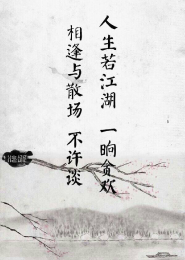 人生若江湖 一晌贪欢
相逢与散场 不许谈